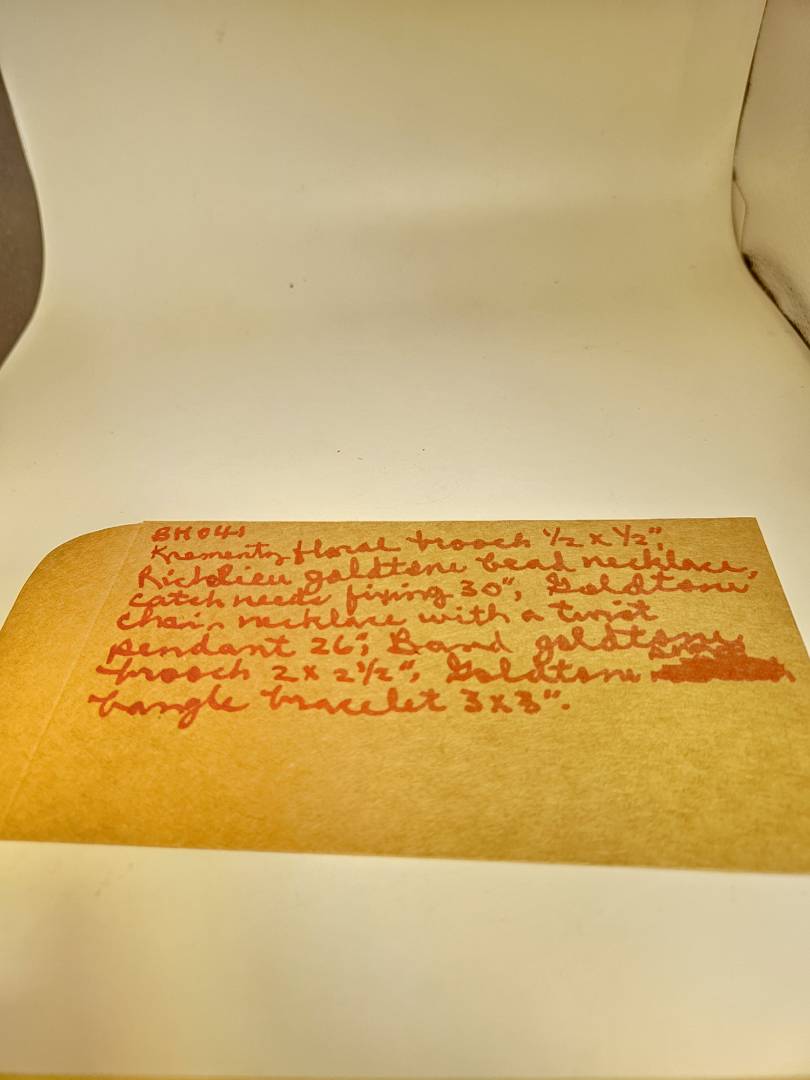 BH041
Krementz floral brooch 1/2 x 1/2",
Richelieu goldtone bead necklace,
catch needs fixing 30", Goldtone
chain necklace with a twist
pendant 26"; Band goldtone
brooch 2 x 2 1/2", Goldtone
bangle bracelet 3 x 3".